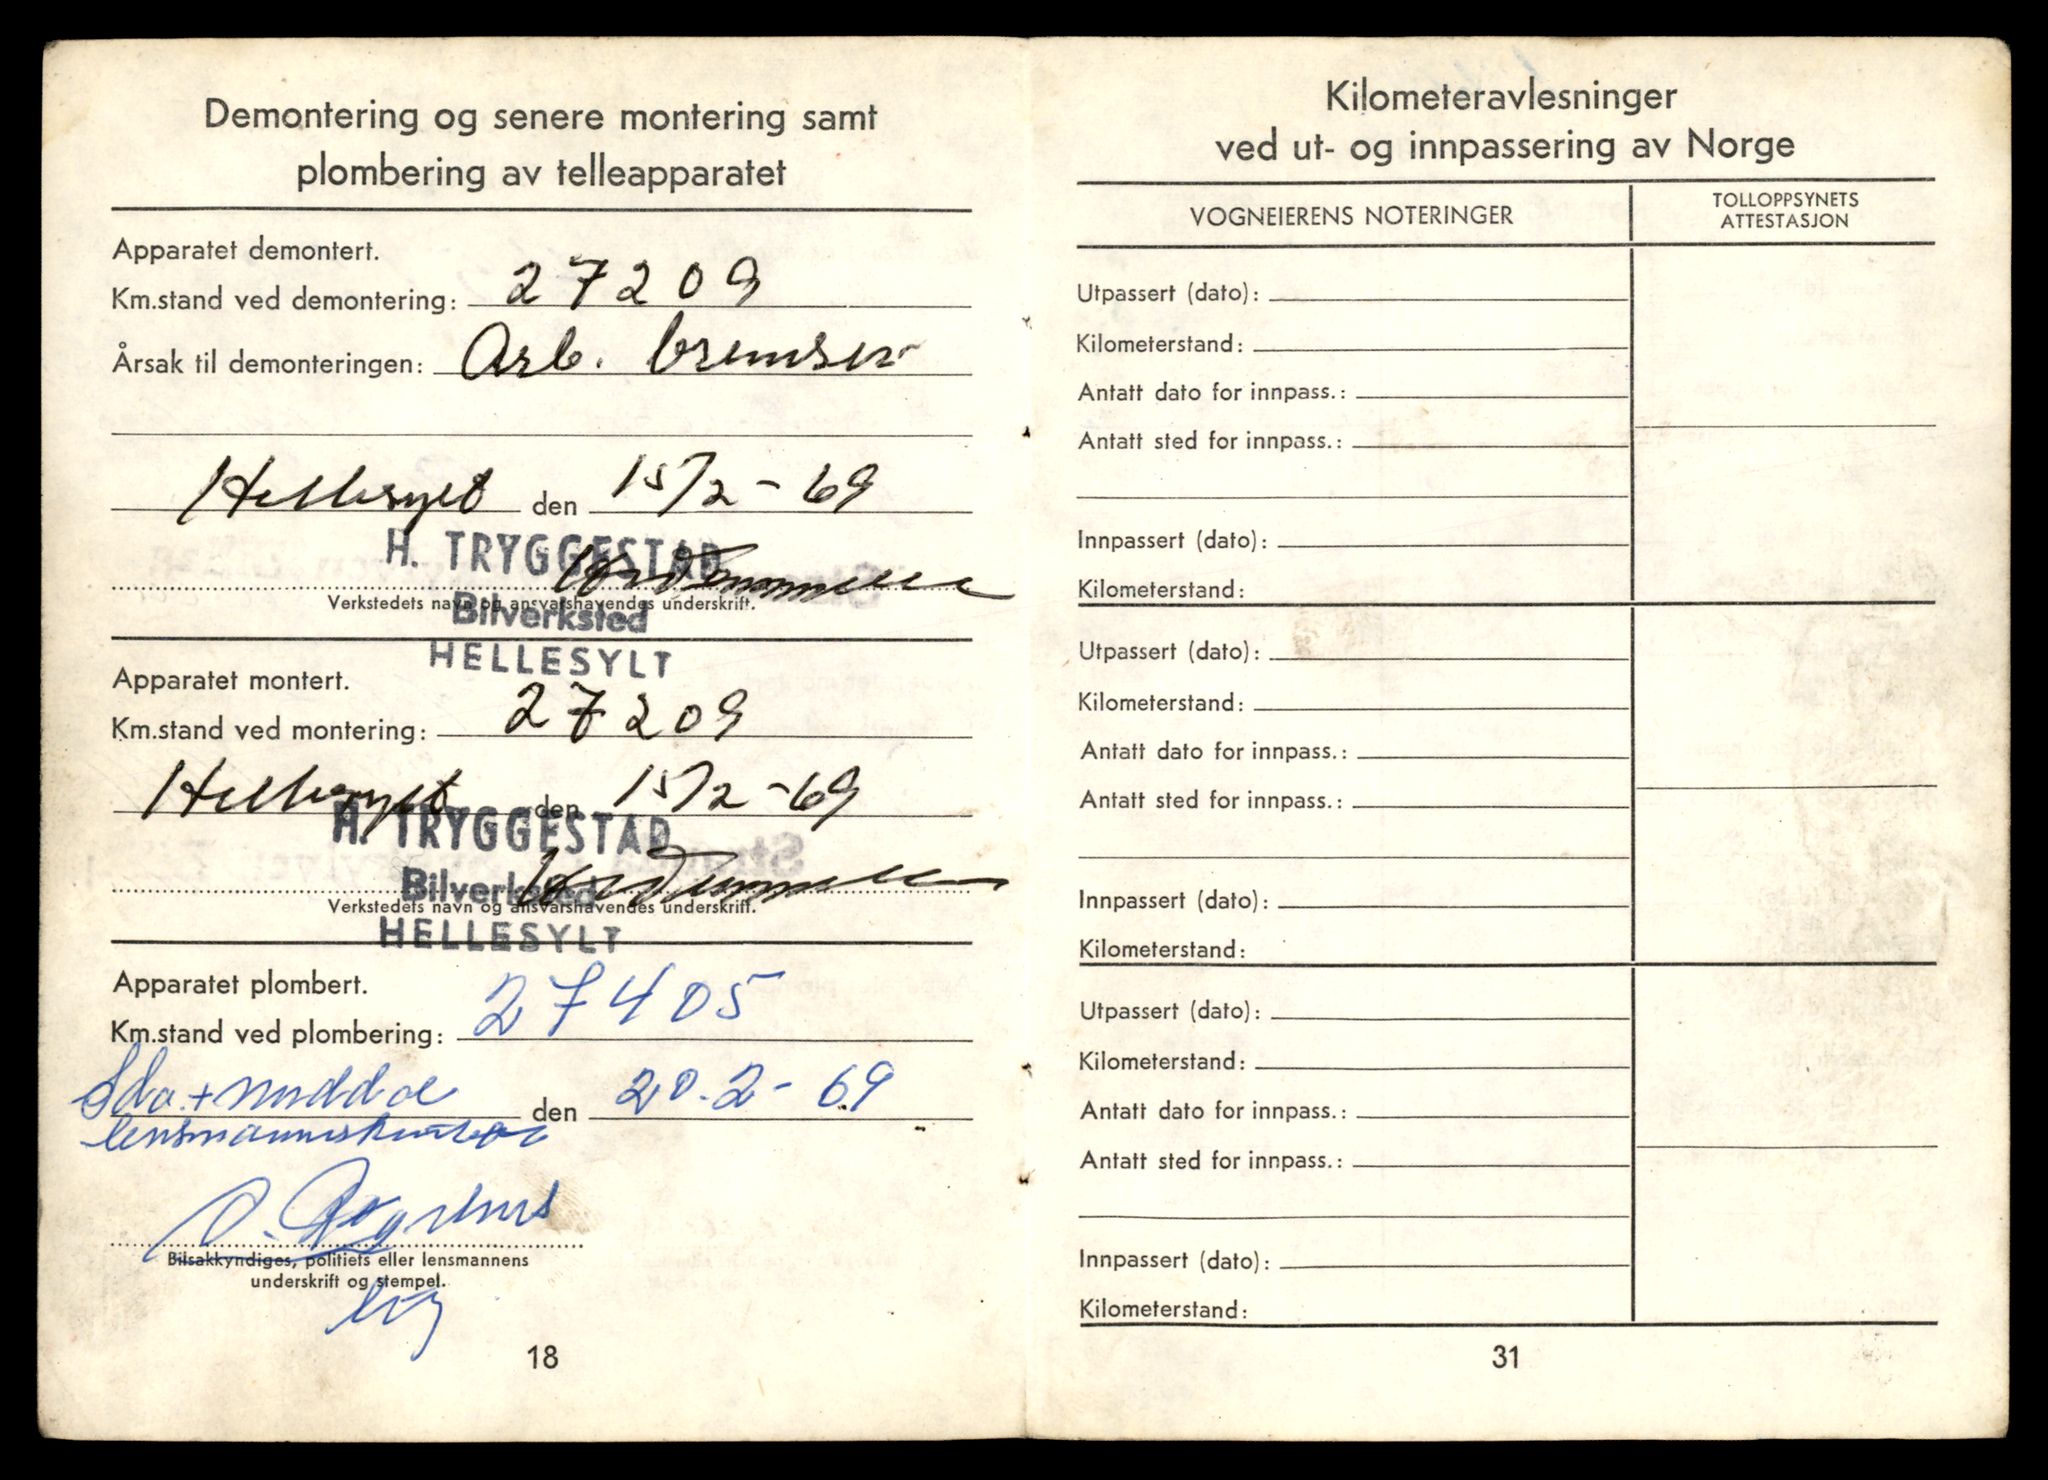 Demontering og senere montering samt
plombering av telleapparatet
Apparatet demontert.
Km.stand ved demontering: 27209
Årsak til demonteringen: Arb. bremser
Hellesylt den 15/2-69
H. TRYGGESTAD
Verkstedets navn og ansvarshavendes underskrift.
Bilverksted
HELLESYLT
Apparatet montert.
Km.stand ved montering: 27209
Hellesylt den 15/2-69
H. TRYGGESTAD
Bilverksted
Verkstedets navn og ansvarshavendes underskrift.
HELLESYLT
Apparatet plombert.
Km.stand ved plombering: 27405
den 20.2-69
lensmannskontor
Bilsakkyndiges, politiets eller lensmannens
underskrift og stempel.
18
Kilometeravlesninger
ved ut- og innpassering av Norge
VOGNEIERENS NOTERINGER
TOLLOPPSYNETS
ATTESTASJON
Utpassert (dato):
Kilometerstand:
Antatt dato for innpass.:
Antatt sted for innpass.:
Innpassert (dato):
Kilometerstand:
Utpassert (dato):
Kilometerstand:
Antatt dato for innpass.:
Antatt sted for innpass.:
Innpassert (dato):
Kilometerstand:
Utpassert (dato):
Kilometerstand:
Antatt dato for innpass.:
Antatt sted for innpass.:
Innpassert (dato):
Kilometerstand:
31